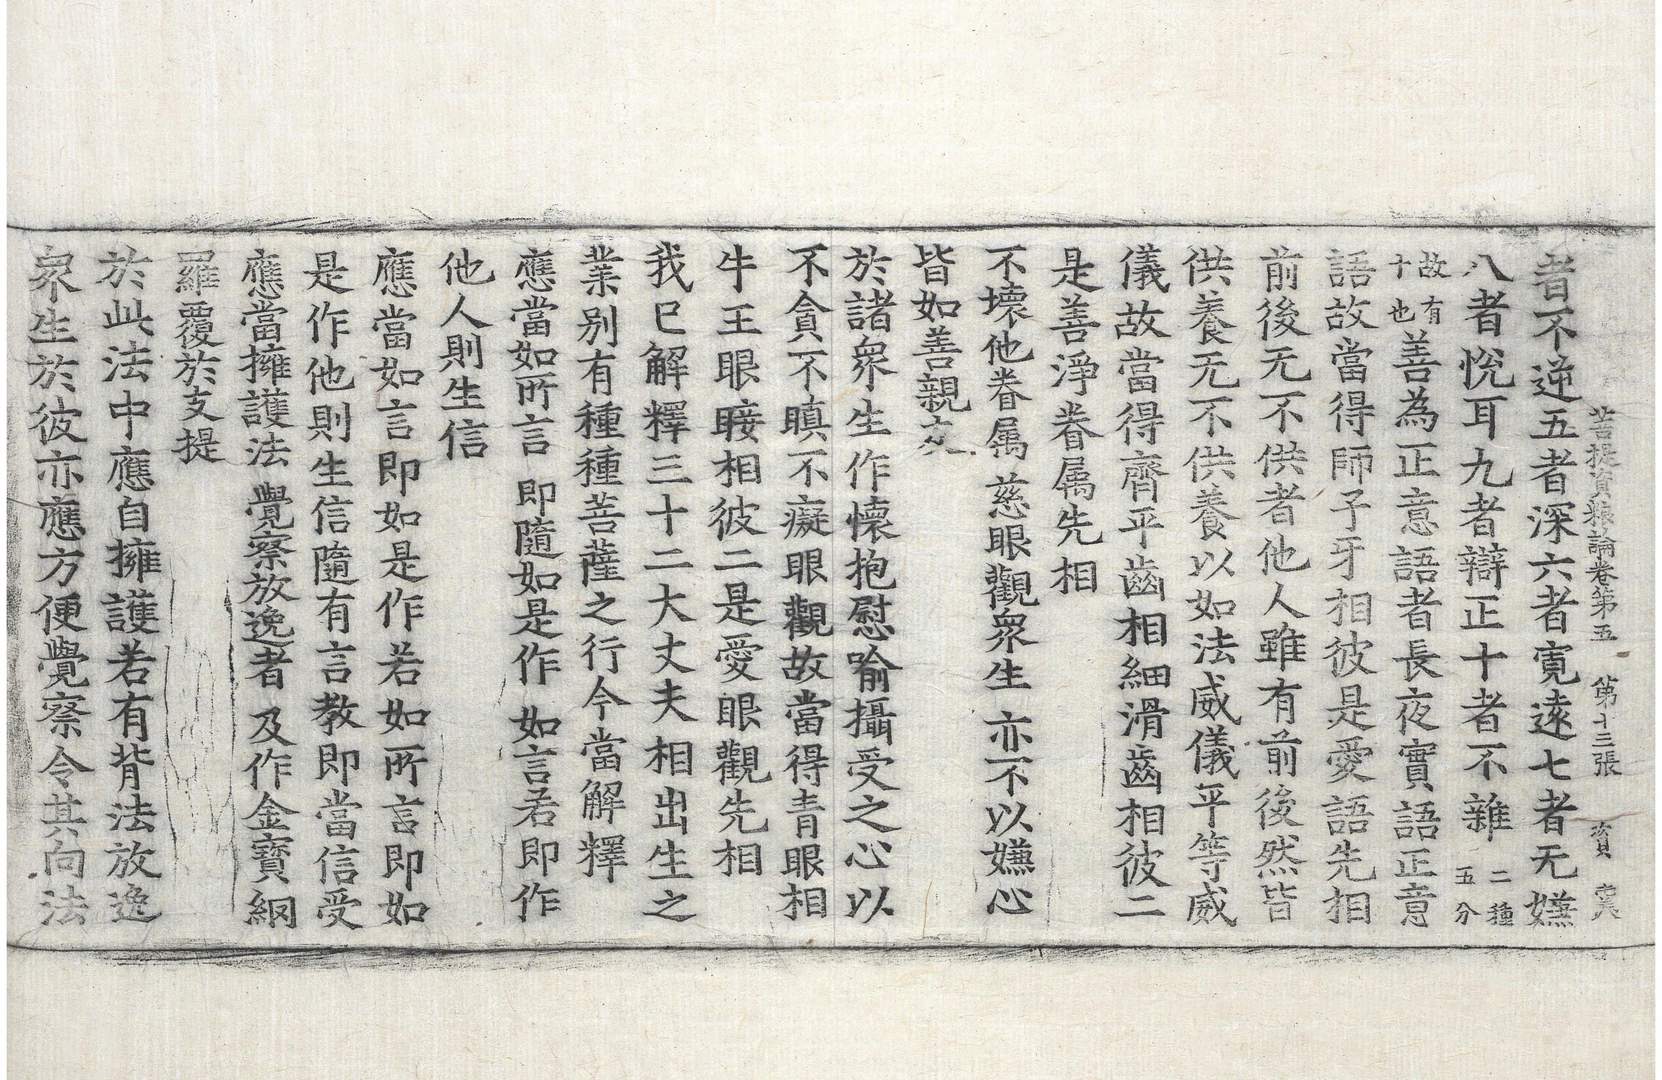 菩提資糧論卷第五 第十三張 資
者不逆五者深六者寬遠七者无嫌
八者悅耳九者辯正十者不雜二種五分
故有十也善為正意語者長夜實語正意
語故當得師子牙相彼是愛語先相
前後无不供者他人雖有前後然皆
供養无不供養以如法威儀平等威
儀故當得齊平齒相細滑齒相彼二
是善淨眷屬先相
不壞他眷屬 慈眼觀眾生 亦不以嫌心
皆如善親友
於諸眾生作懷抱慰喻攝受之心以
不貪不瞋不癡眼觀故當得青眼相
牛王眼睫相彼二是愛眼觀先相
我已解釋三十二大丈夫相出生之
業別有種種菩薩之行今當解釋
應當如所言 即隨如是作 如言若即作
他人則生信
應當如言即如是作若如所言即如
是作他則生信隨有言教即當信受
應當擁護法 覺察放逸者 及作金寶網
羅覆於支提
於此法中應自擁護若有背法放逸
眾生於彼亦應方便覺察令其向法